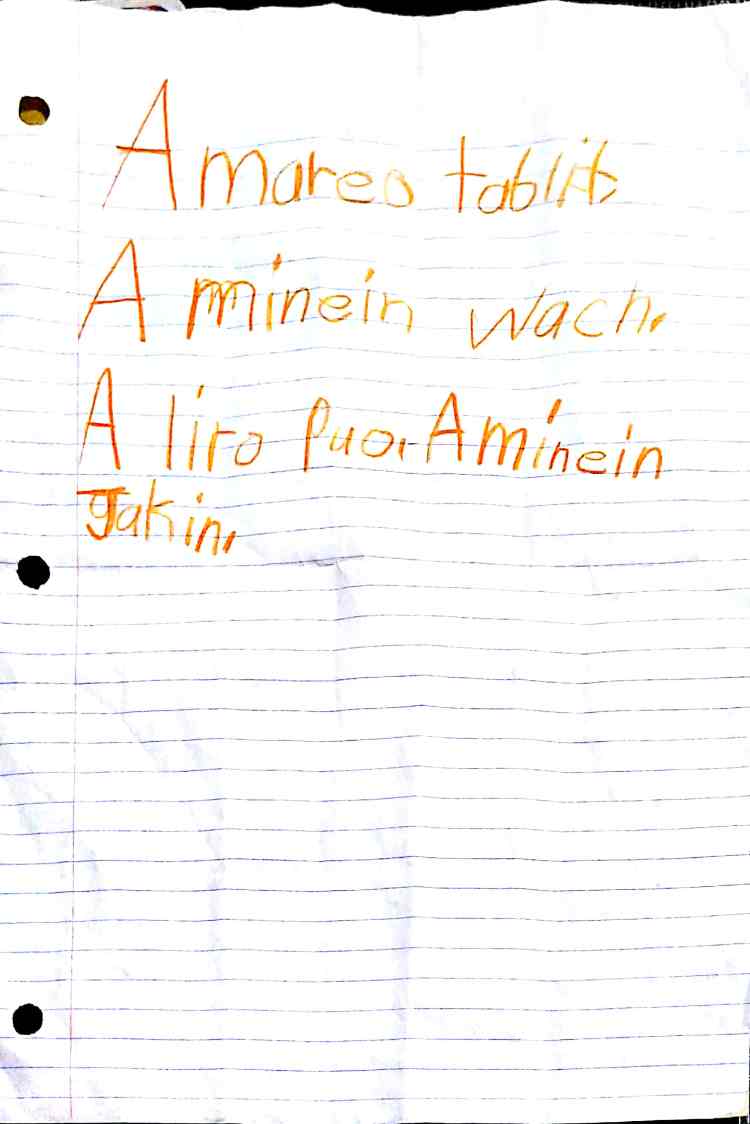 Amareo tablit,
A minein wach,
A liro puo, A minein
Jakin,